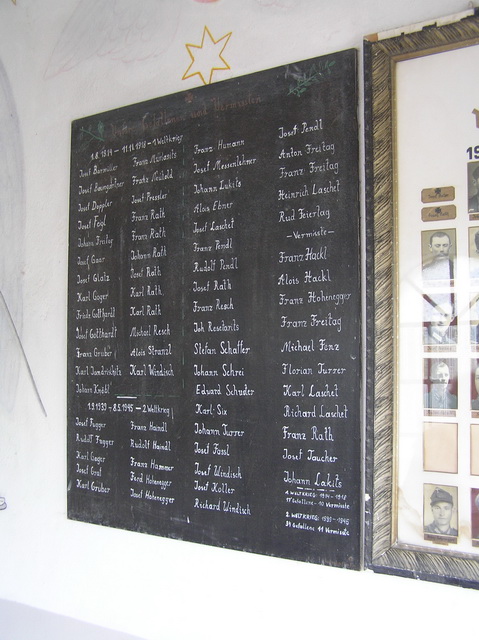 Gefallenen und Vermissten
1.8.1914 - 11.11.1918 - 1. Weltkrieg
Josef Baumgartner
Josef Doppler
Josef Fogl
Johann Freitag
Josef Gaar
Josef Glatz
Karl Goger
Franz Gruber
Johann Knöbl
Franz Muhold
Josef Pressler
Franz Rath
Franz Rath
Johann Rath
Josef Rath
Karl Rath
Karl Rath
Michael Resch
Alois Stranzl
Karl Windisch
1.9.1939 - 8.5.1945 - 2. Weltkrieg
Josef Fugger
Rudolf Fugger
Karl Goger
Josef Graf
Karl Gruber
Franz Haindl
Rudolf Haindl
Franz Hammer
Ferd. Hohenegger
Josef Hohenegger
Franz Humann
Josef Messenlehner
Johann Lukits
Alois Ebner
Josef Laschet
Franz Pendl
Rudolf Pendl
Josef Rath
Franz Resch
Stefan Schaffer
Johann Schrei
Eduard Schuder
Karl Six
Johann Turrer
Josef Fassl
Josef Windisch
Josef Koller
Richard Windisch
Josef Pendl
Anton Freitag
Franz Freitag
Heinrich Laschet
Rud Feiertag
- Vermisste -
Franz Hackl
Alois Hackl
Franz Hohenegger
Franz Freitag
Michael Fenz
Florian Turrer
Karl Laschet
Richard Laschet
Franz Rath
Josef Taucher
Johann Lakits
1. WELTKRIEG: 1914 - 1918
Gefallene 6 Vermisste
2. WELTKRIEG: 1939 - 1945
Gefallene 11 Vermisste
19